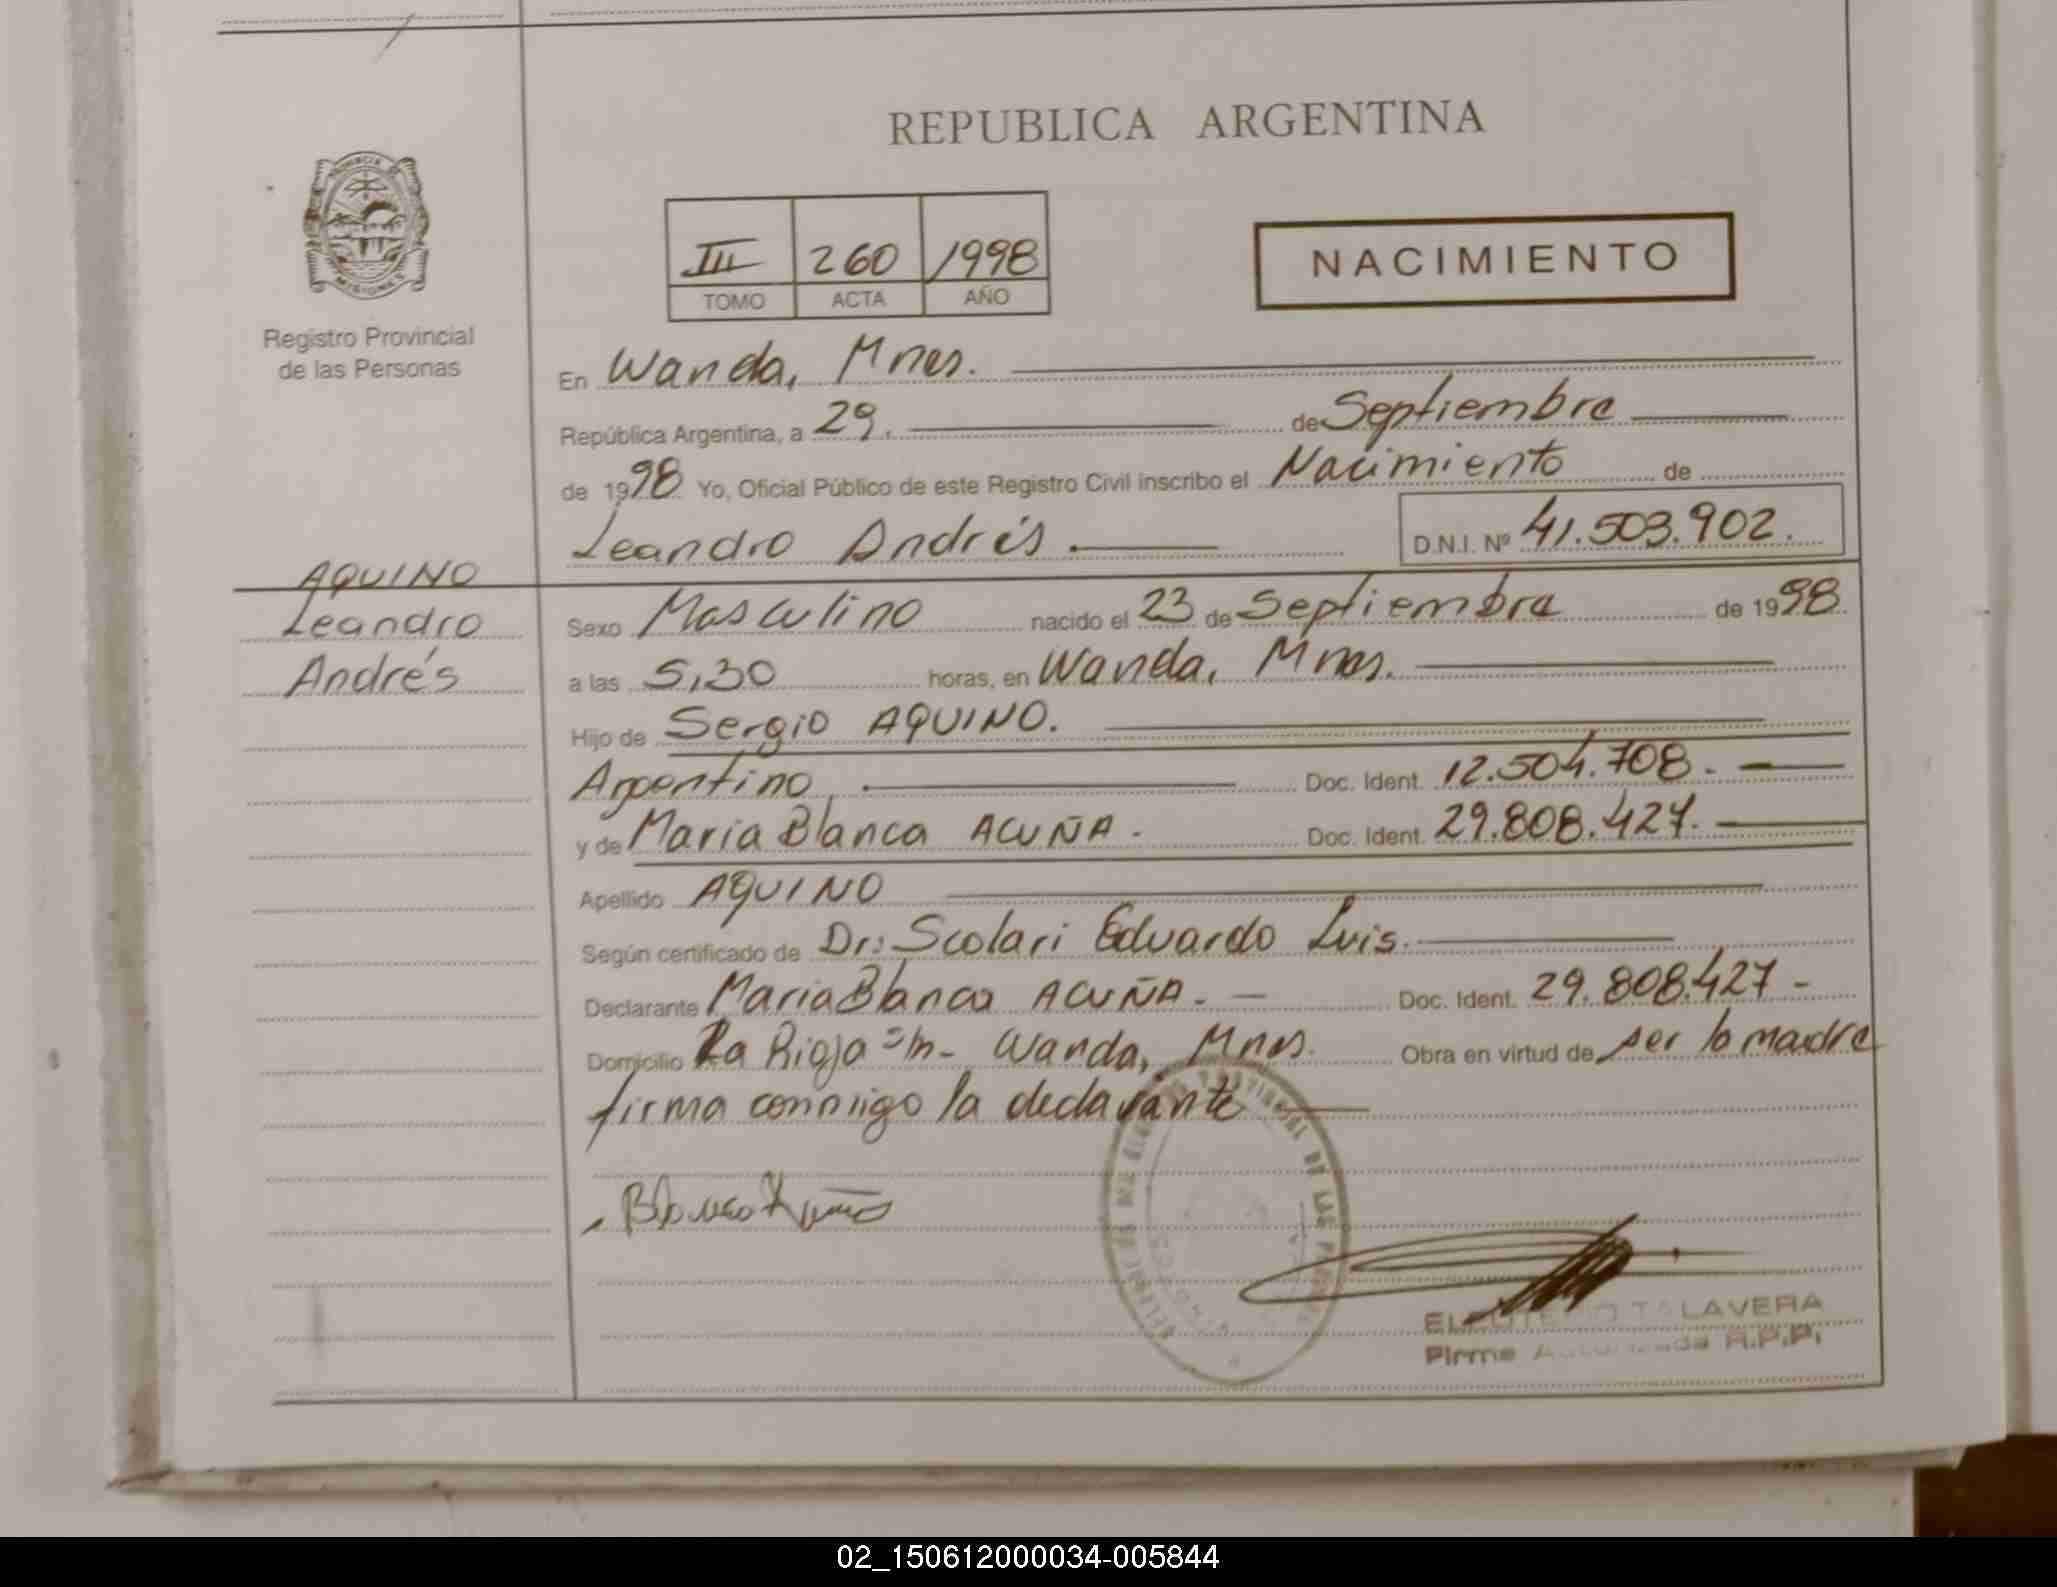 REPUBLICA ARGENTINA
PROVINCIA
MISIONES
Registro Provincial
de las Personas
III 260 1998
TOMO ACTA AÑO
NACIMIENTO
En Wanda, Mnes.
República Argentina, a 29. de Septiembre
de 1998 Yo, Oficial Público de este Registro Civil inscribo el Nacimiento de
Leandro Andrés. D.N.I. Nº 41.503.902.
AQUINO
Leandro
Andrés
Sexo Masculino nacido el 23 de Septiembre de 1998.
a las 5,30 horas, en Wanda, Mnes.
Hijo de Sergio AQUINO.
Argentino. Doc. Ident. 12.504.708.
y de María Blanca ACUÑA. Doc. Ident. 29.808.427.
Apellido AQUINO
Según certificado de Dr: Scolari Eduardo Luis.
Declarante María Blanca ACUÑA. - Doc. Ident. 29.808.427 -
Domicilio La Rioja s/n - Wanda, Mnes. Obra en virtud de ser la madre
firma conmigo la declarante
Blanca Acuña
TALAVERA
Firma R.P.P.
02_150612000034-005844